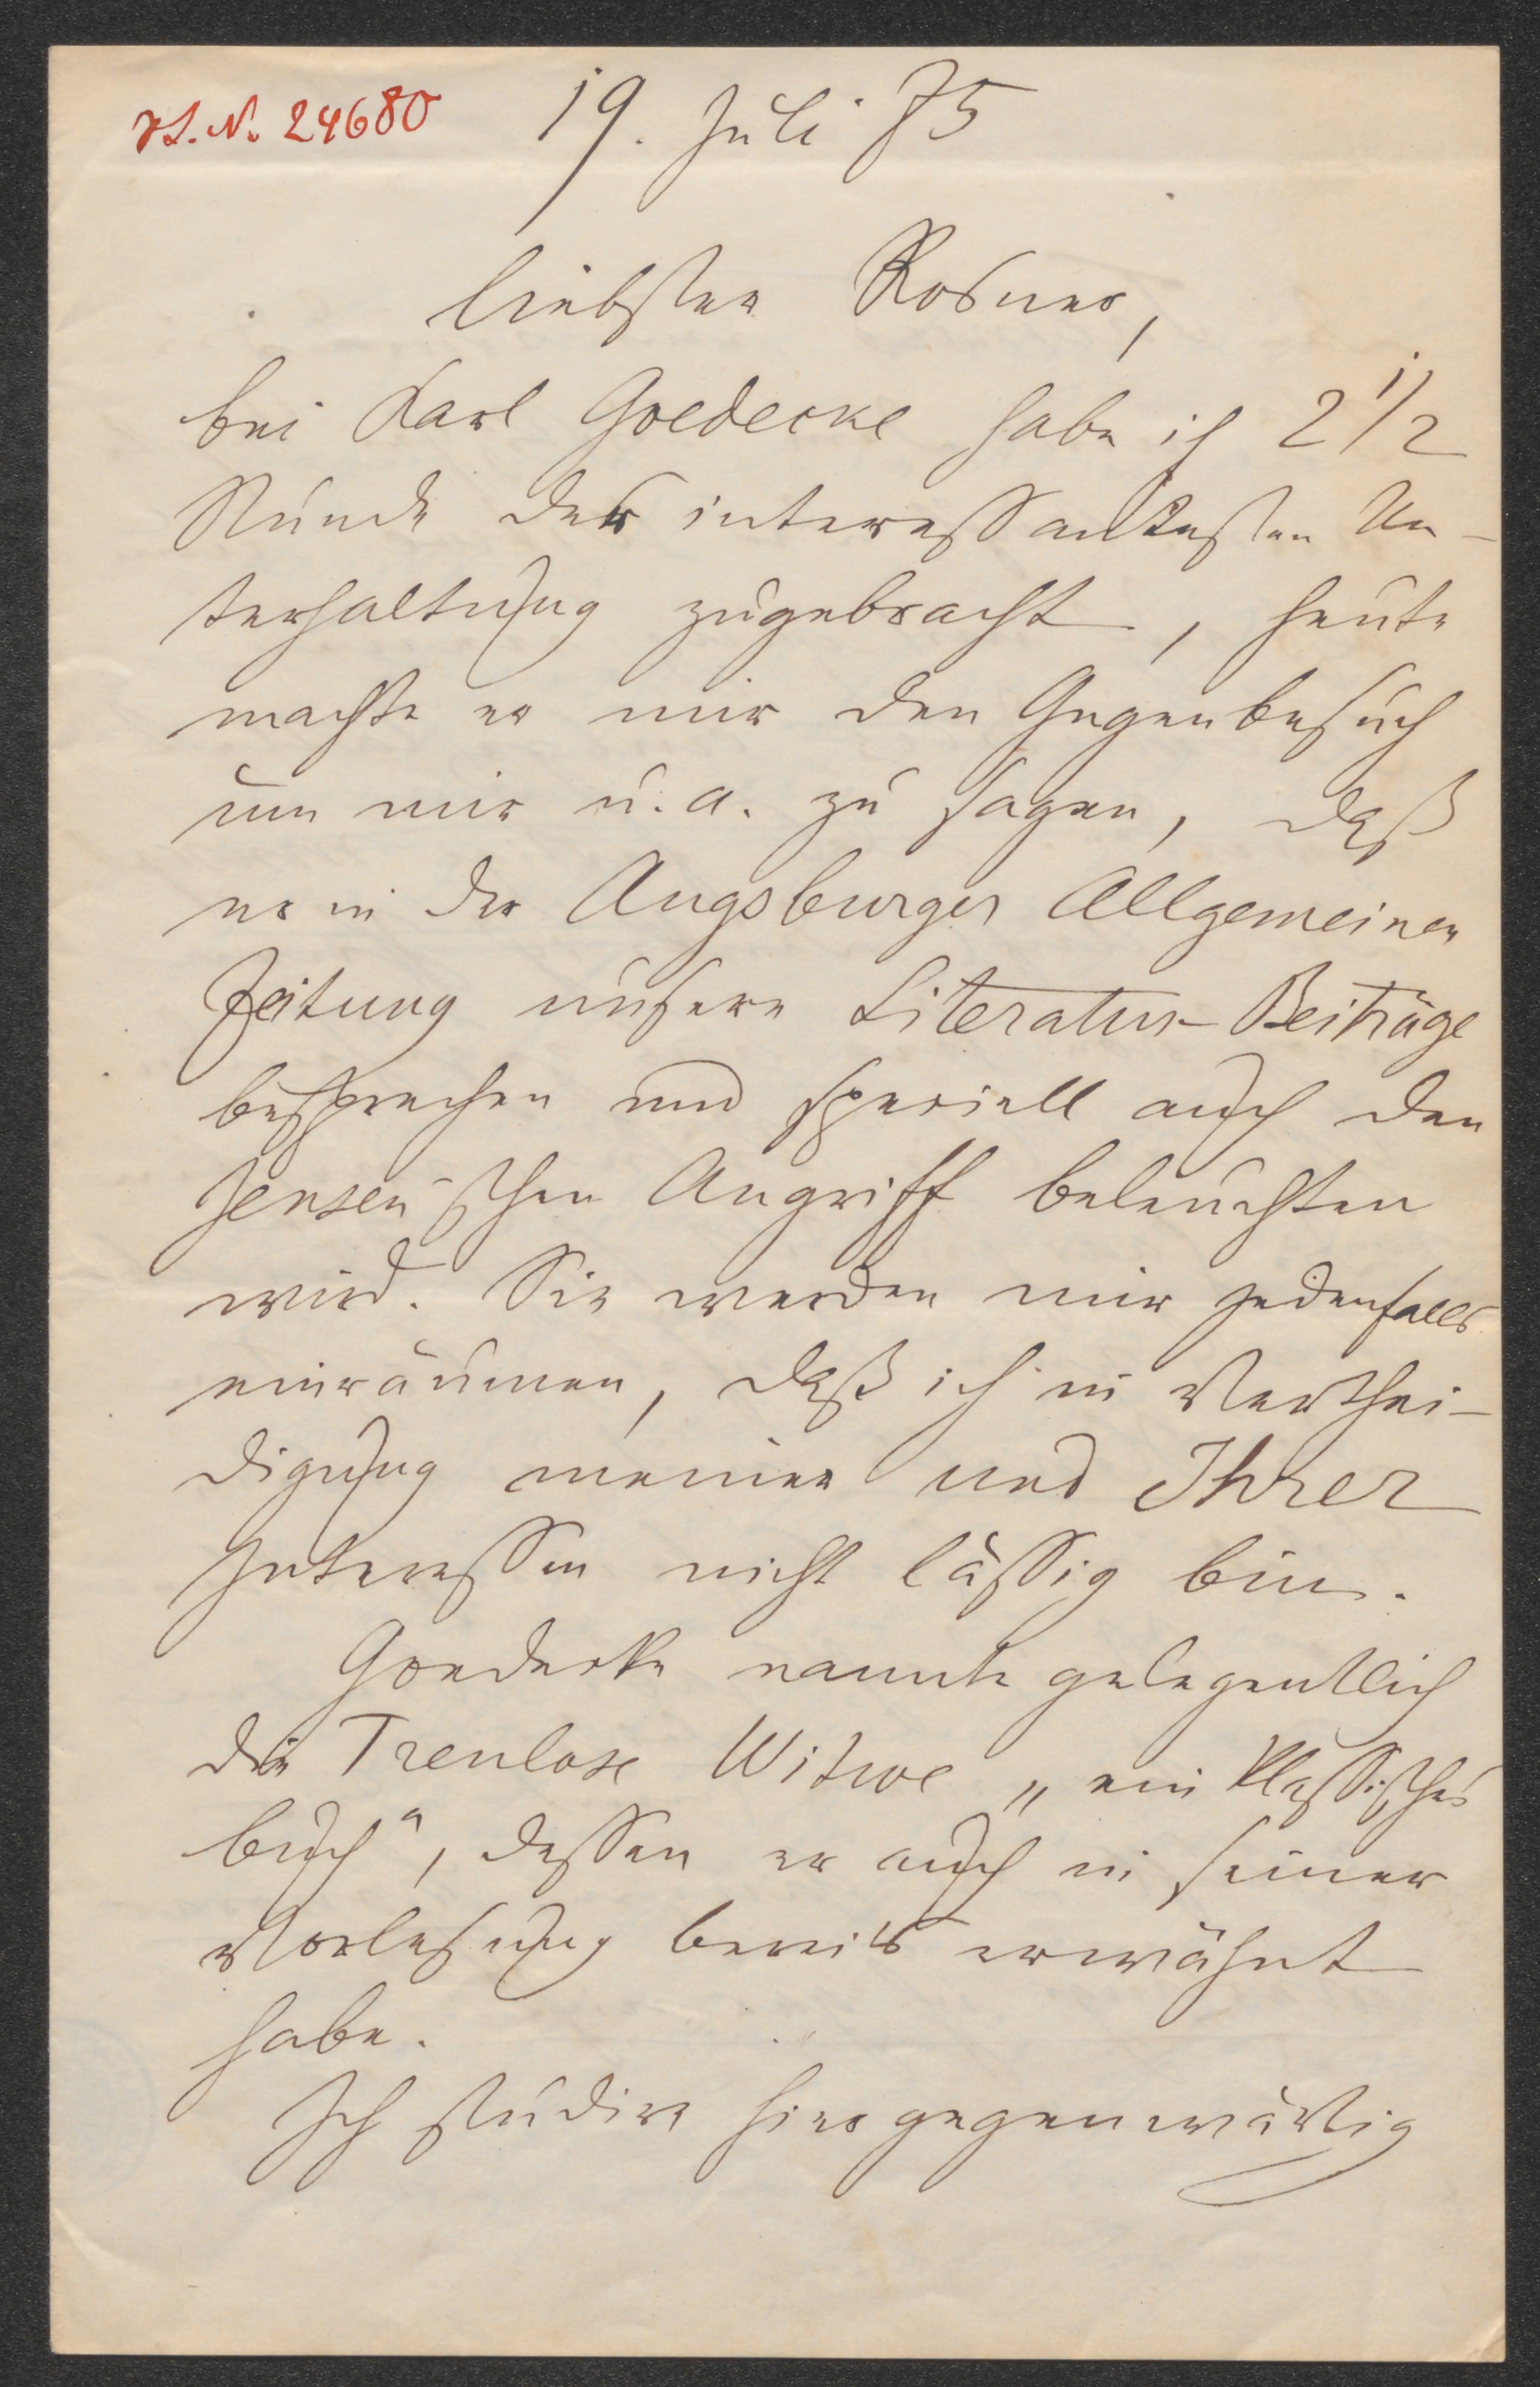 H.I.N. 24680
19. Juli 75
liebster Rosner,
bei Karl Goedecke habe ich 2 1/2
Stunde der interessantesten Un-
terhaltung zugebracht, heute
machte er mir den Gegenbesuch
um mir u. a. zu sagen, daß
er in der Augsburger Allgemeinen
Zeitung unsere Literatur-Beiträge
besprechen und speciell auch den
Jensen'schen Angriff beleuchten
wird. Sie werden mir jedenfalls
einräumen, daß ich in Verthei-
digung meiner und Ihrer
Interessen nicht lässig bin.
Goedecke nannte gelegentlich
die Treulose Witwe „ein klassisches
Buch“, dessen er auch in seiner
Vorlesung bereits erwähnt
habe.
Ich studire hier gegenwärtig